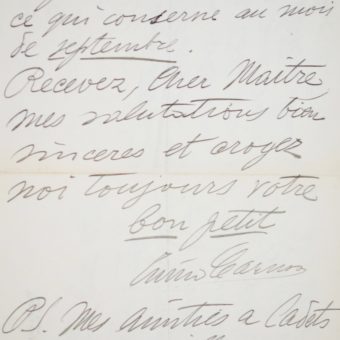 ce qui conserne au mois
de septembre.
Recevez, Cher Maître,
mes salutations bien
sinceres et croyez
moi toujours votre
bon petit
PS. Mes amitiés a Cadets